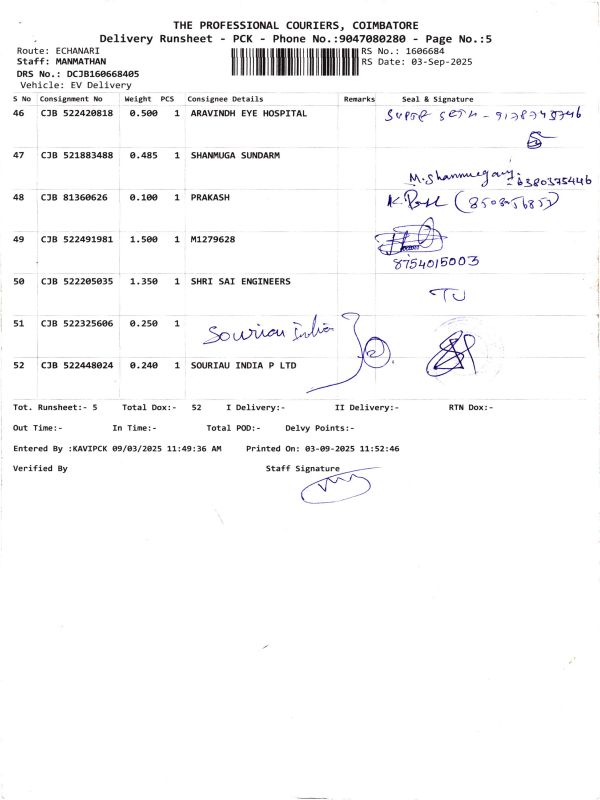 THE PROFESSIONAL COURIERS, COIMBATORE
Delivery Runsheet - PCK - Phone No.:9047080280 - Page No.:5
Route: ECHANARI
RS No.: 1606684
Staff: MANMATHAN
RS Date: 03-Sep-2025
DRS No.: DCJB160668405
Vehicle: EV Delivery
S No Consignment No Weight PCS Consignee Details Remarks Seal & Signature
46 CJB 522420818 0.500 1 ARAVINDH EYE HOSPITAL
47 CJB 521883488 0.485 1 SHANMUGA SUNDARM
M.Shanmugany - 6380375446
48 CJB 81360626 0.100 1 PRAKASH
49 CJB 522491981 1.500 1 M1279628
8754015003
50 CJB 522205035 1.350 1 SHRI SAI ENGINEERS
51 CJB 522325606 0.250 1 Souriau India
2
52 CJB 522448024 0.240 1 SOURIAU INDIA P LTD
Tot. Runsheet:- 5 Total Dox:- 52 I Delivery:- II Delivery:- RTN Dox:-
Out Time:- In Time:- Total POD:- Delvy Points:-
Entered By :KAVIPCK 09/03/2025 11:49:36 AM Printed On: 03-09-2025 11:52:46
Verified By Staff Signature